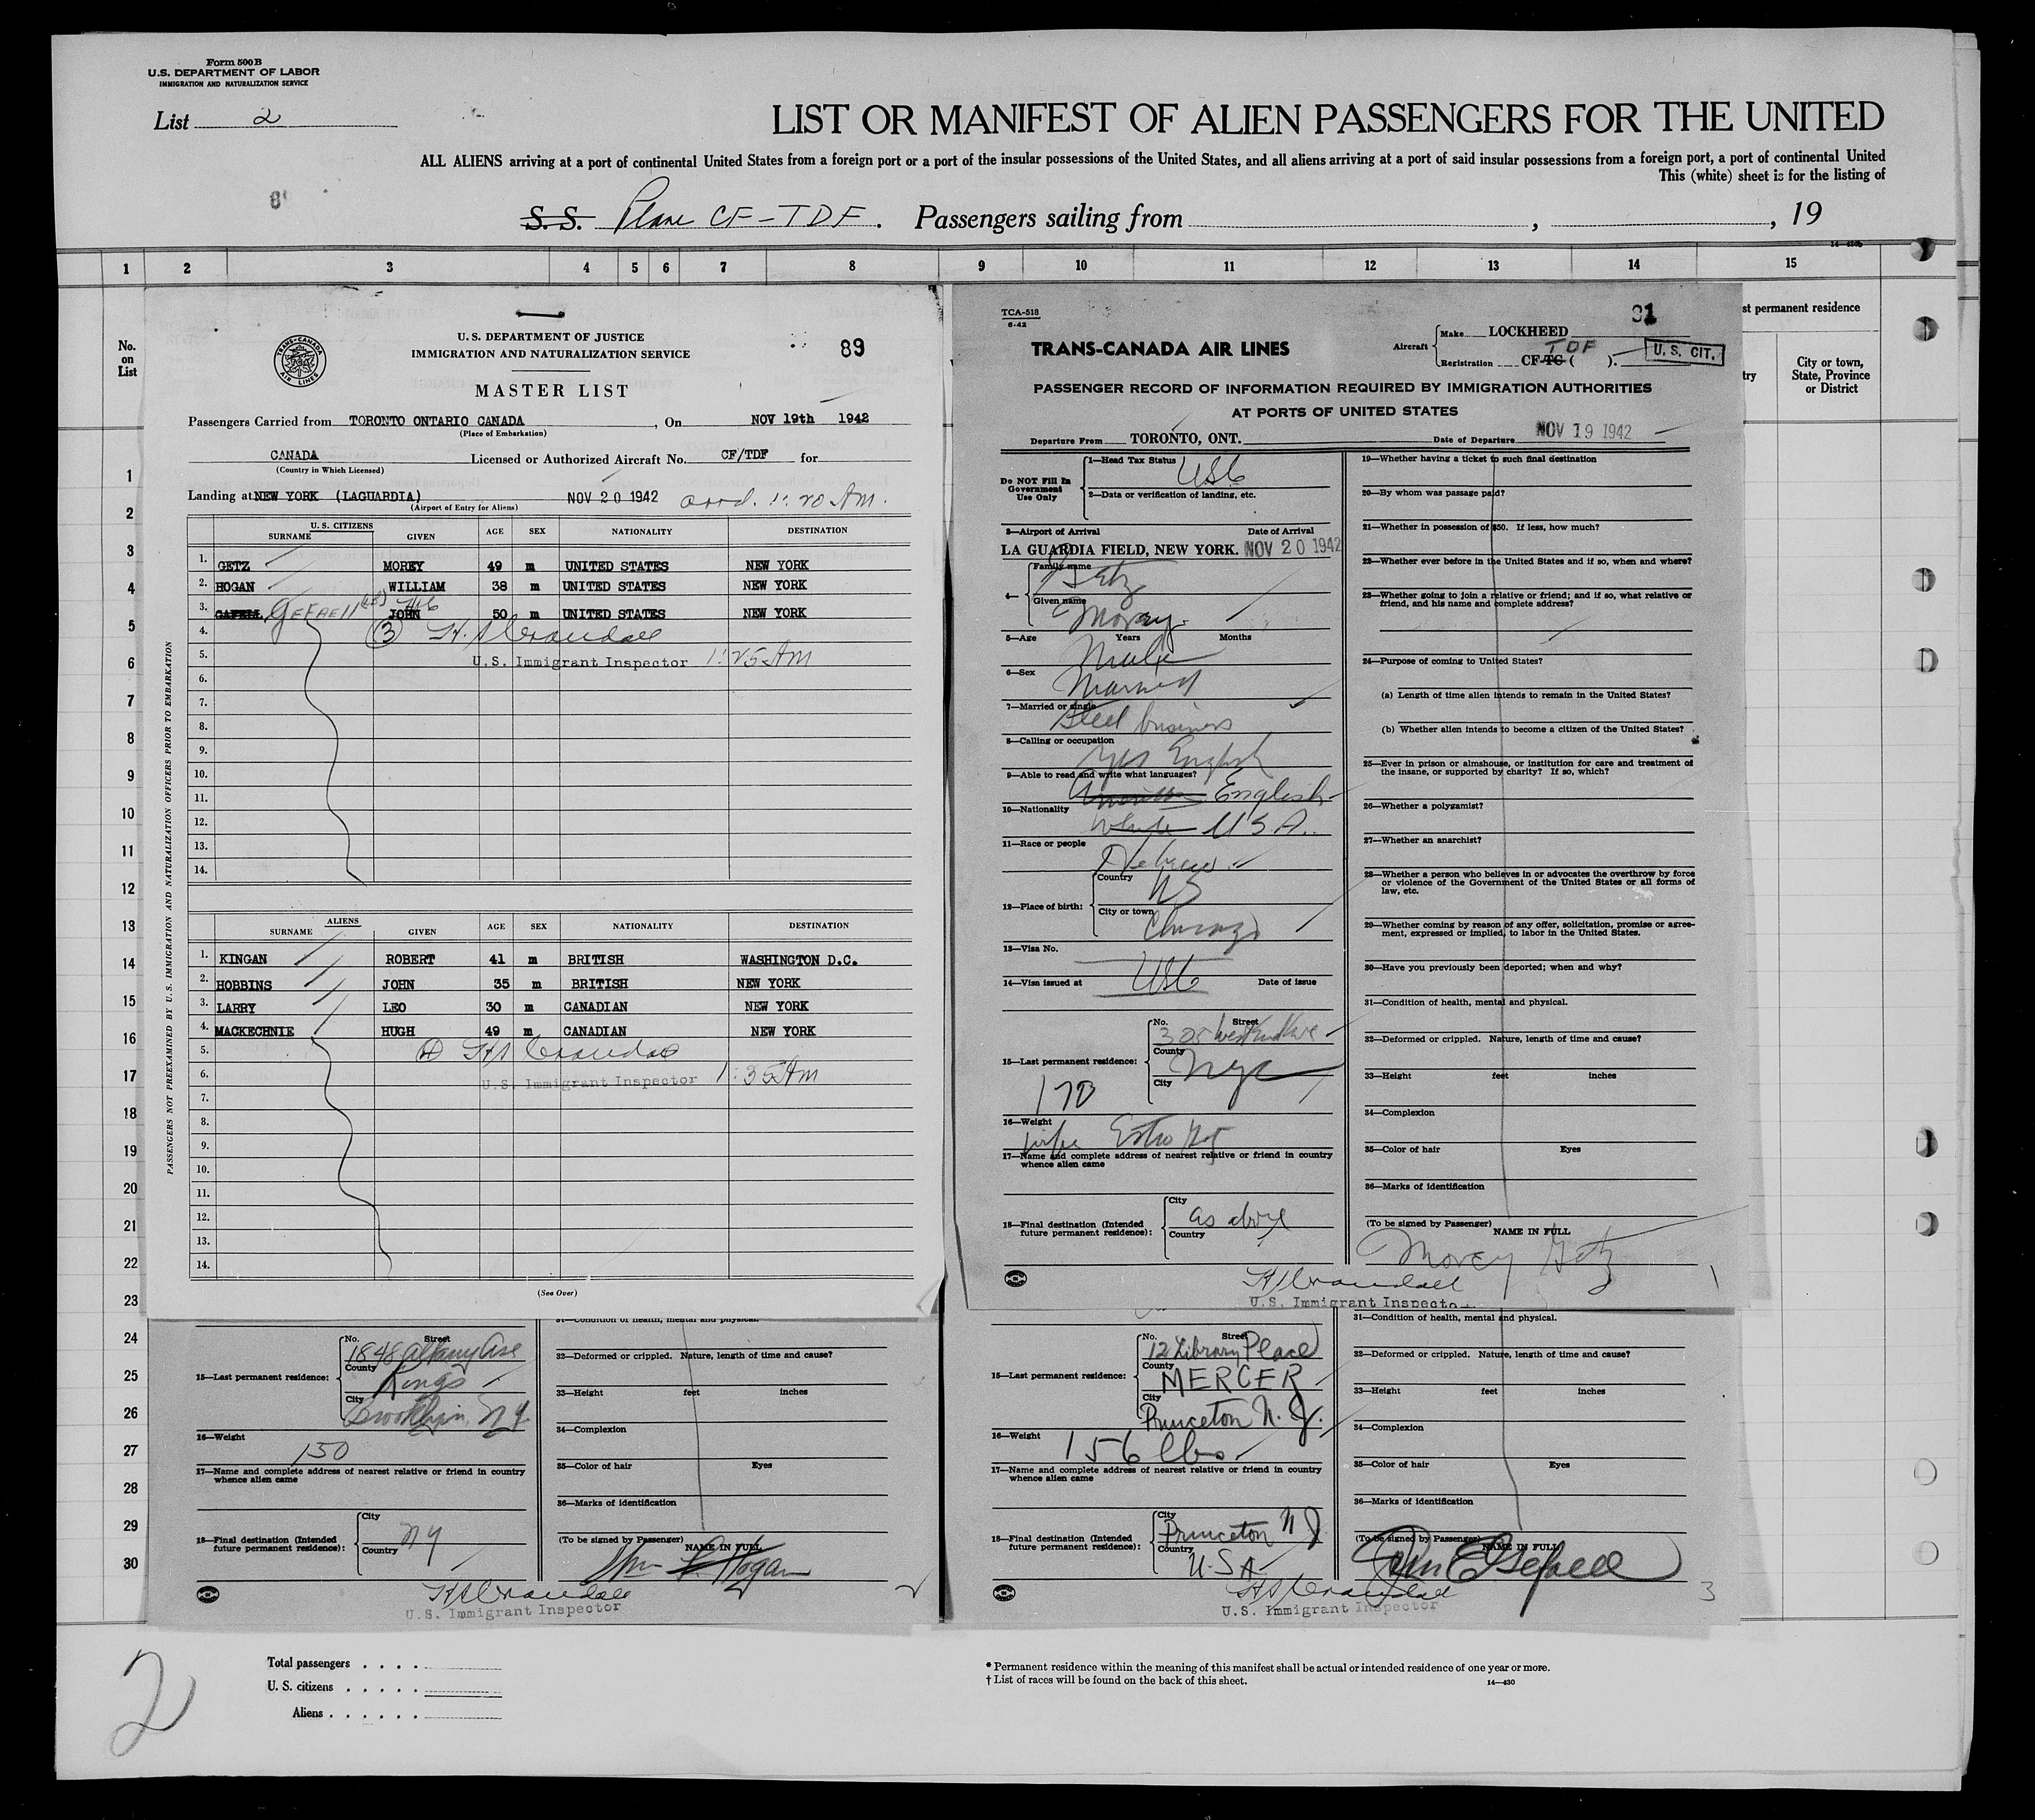 Form 500 B
U.S. DEPARTMENT OF LABOR
IMMIGRATION AND NATURALIZATION SERVICE
List 2
LIST OR MANIFEST OF ALIEN PASSENGERS FOR THE UNITED
ALL ALIENS arriving at a port of continental United States from a foreign port or a port of the insular possessions of the United States, and all aliens arriving at a port of said insular possessions from a foreign port, a port of continental United
This (white) sheet is for the listing of
S. S. Plane CF-TDF. Passengers sailing from , , 19
1 2 3 4 5 6 7 8 9 10 11 12 13 14 15
No. on List
st permanent residence
try
City or town, State, Province or District
1
2
3
4
5
6
7
8
9
10
11
12
13
14
15
16
17
18
19
20
21
22
23
24
25
26
27
28
29
30
TRANS-CANADA AIR LINES
U. S. DEPARTMENT OF JUSTICE
IMMIGRATION AND NATURALIZATION SERVICE
89
MASTER LIST
Passengers Carried from TORONTO ONTARIO CANADA, On NOV 19th 1942
(Place of Embarkation)
CANADA Licensed or Authorized Aircraft No. CF/TDF for
(Country in Which Licensed)
Landing at NEW YORK (LAGUARDIA) NOV 20 1942 arrd. 1:20 AM.
(Airport of Entry for Aliens)
PASSENGERS NOT PREEXAMINED BY U. S. IMMIGRATION AND NATURALIZATION OFFICERS PRIOR TO EMBARKATION
U. S. CITIZENS
SURNAME GIVEN AGE SEX NATIONALITY DESTINATION
1. GETZ MOREY 49 m UNITED STATES NEW YORK
2. HOGAN WILLIAM 38 m UNITED STATES NEW YORK
3. GEFAELL JOHN 50 m UNITED STATES NEW YORK
4. (3) H.S. Crandall
5. U.S. Immigrant Inspector 1:25 AM
6.
7.
8.
9.
10.
11.
12.
13.
14.
ALIENS
SURNAME GIVEN AGE SEX NATIONALITY DESTINATION
1. KINGAN ROBERT 41 m BRITISH WASHINGTON D.C.
2. HOBBINS JOHN 35 m BRITISH NEW YORK
3. LARRY LEO 30 m CANADIAN NEW YORK
4. MACKECHNIE HUGH 49 m CANADIAN NEW YORK
5. (4) H S Crandall
6. U.S. Immigrant Inspector 1:35 AM
7.
8.
9.
10.
11.
12.
13.
14.
(See Over)
TCA-518
6-42
91
TRANS-CANADA AIR LINES
Aircraft Make LOCKHEED
Registration CF-TC ( TDF ).
U. S. CIT.
PASSENGER RECORD OF INFORMATION REQUIRED BY IMMIGRATION AUTHORITIES
AT PORTS OF UNITED STATES
Departure From TORONTO, ONT. Date of Departure NOV 19 1942
Do NOT Fill In Government Use Only
1—Head Tax Status USC
2—Data or verification of landing, etc.
3—Airport of Arrival Date of Arrival
LA GUARDIA FIELD, NEW YORK. NOV 20 1942
4— Family name Getz
Given name Morey
5—Age Years Months
Male
6—Sex
Married
7—Married or single
Steel business
8—Calling or occupation
Yes English
9—Able to read and write what languages?
American English
10—Nationality
White U S A.
11—Race or people
Hebrew
12—Place of birth: Country US
City or town Chicago
13—Visa No.
14—Visa issued at USC Date of issue
15—Last permanent residence: No. Street 305 West End Ave
County
City NYC
170
16—Weight
wife
17—Name and complete address of nearest relative or friend in country whence alien came
18—Final destination (Intended future permanent residence): City as above
Country
19—Whether having a ticket to such final destination
20—By whom was passage paid?
21—Whether in possession of $50. If less, how much?
22—Whether ever before in the United States and if so, when and where?
23—Whether going to join a relative or friend; and if so, what relative or friend, and his name and complete address?
24—Purpose of coming to United States?
(a) Length of time alien intends to remain in the United States?
(b) Whether alien intends to become a citizen of the United States?
25—Ever in prison or almshouse, or institution for care and treatment of the insane, or supported by charity? If so, which?
26—Whether a polygamist?
27—Whether an anarchist?
28—Whether a person who believes in or advocates the overthrow by force or violence of the Government of the United States or all forms of law, etc.
29—Whether coming by reason of any offer, solicitation, promise or agreement, expressed or implied, to labor in the United States.
30—Have you previously been deported; when and why?
31—Condition of health, mental and physical.
32—Deformed or crippled. Nature, length of time and cause?
33—Height feet inches
34—Complexion
35—Color of hair Eyes
36—Marks of identification
(To be signed by Passenger) NAME IN FULL
Morey Getz
H S Crandall
U.S. Immigrant Inspector
1
31—Condition of health, mental and physical.
15—Last permanent residence: No. Street 1848 Albany Ave
County Kings
City Brooklyn, NY
16—Weight 150
17—Name and complete address of nearest relative or friend in country whence alien came
18—Final destination (Intended future permanent residence): City NY
Country
32—Deformed or crippled. Nature, length of time and cause?
33—Height feet inches
34—Complexion
35—Color of hair Eyes
36—Marks of identification
(To be signed by Passenger) NAME IN FULL
Wm F Hogan
H S Crandall
U.S. Immigrant Inspector
2
31—Condition of health, mental and physical.
15—Last permanent residence: No. Street 12 Library Place
County MERCER
City Princeton N. J.
16—Weight 156 lbs
17—Name and complete address of nearest relative or friend in country whence alien came
18—Final destination (Intended future permanent residence): City Princeton N J
Country U.S.A
32—Deformed or crippled. Nature, length of time and cause?
33—Height feet inches
34—Complexion
35—Color of hair Eyes
36—Marks of identification
(To be signed by Passenger) NAME IN FULL
John E Gefaell
H S Crandall
U.S. Immigrant Inspector
3
2
Total passengers . . . .
U. S. citizens . . . . .
Aliens . . . . . .
* Permanent residence within the meaning of this manifest shall be actual or intended residence of one year or more.
† List of races will be found on the back of this sheet.
14—430